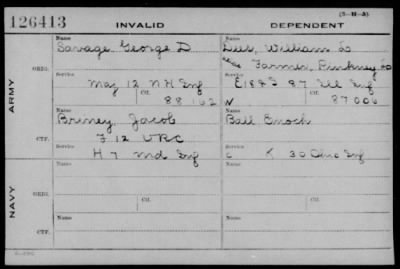 (3-H-3)
126413 INVALID DEPENDENT
ARMY
ORIG.
Name
Savage George D
Service
Maj 12 N H Inf
Ctf.
88162
Name
William Lo
alias Farmer, Pinkney Lo
Service
87 Ill Inf
Ctf.
W 87006
CTF.
Name
Briney, Jacob
F 12 VRC
Service
H 7 Md Inf
Name
Ball Enoch
Service
C K 30 Ohio Inf
NAVY
ORIG.
Name
Service
Ctf.
Name
Service
Ctf.
CTF.
Name
Service
Name
Service